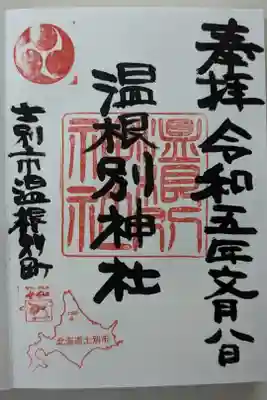 奉拝 令和五年文月八日
温根別神社
士別市温根別町
北海道士別市